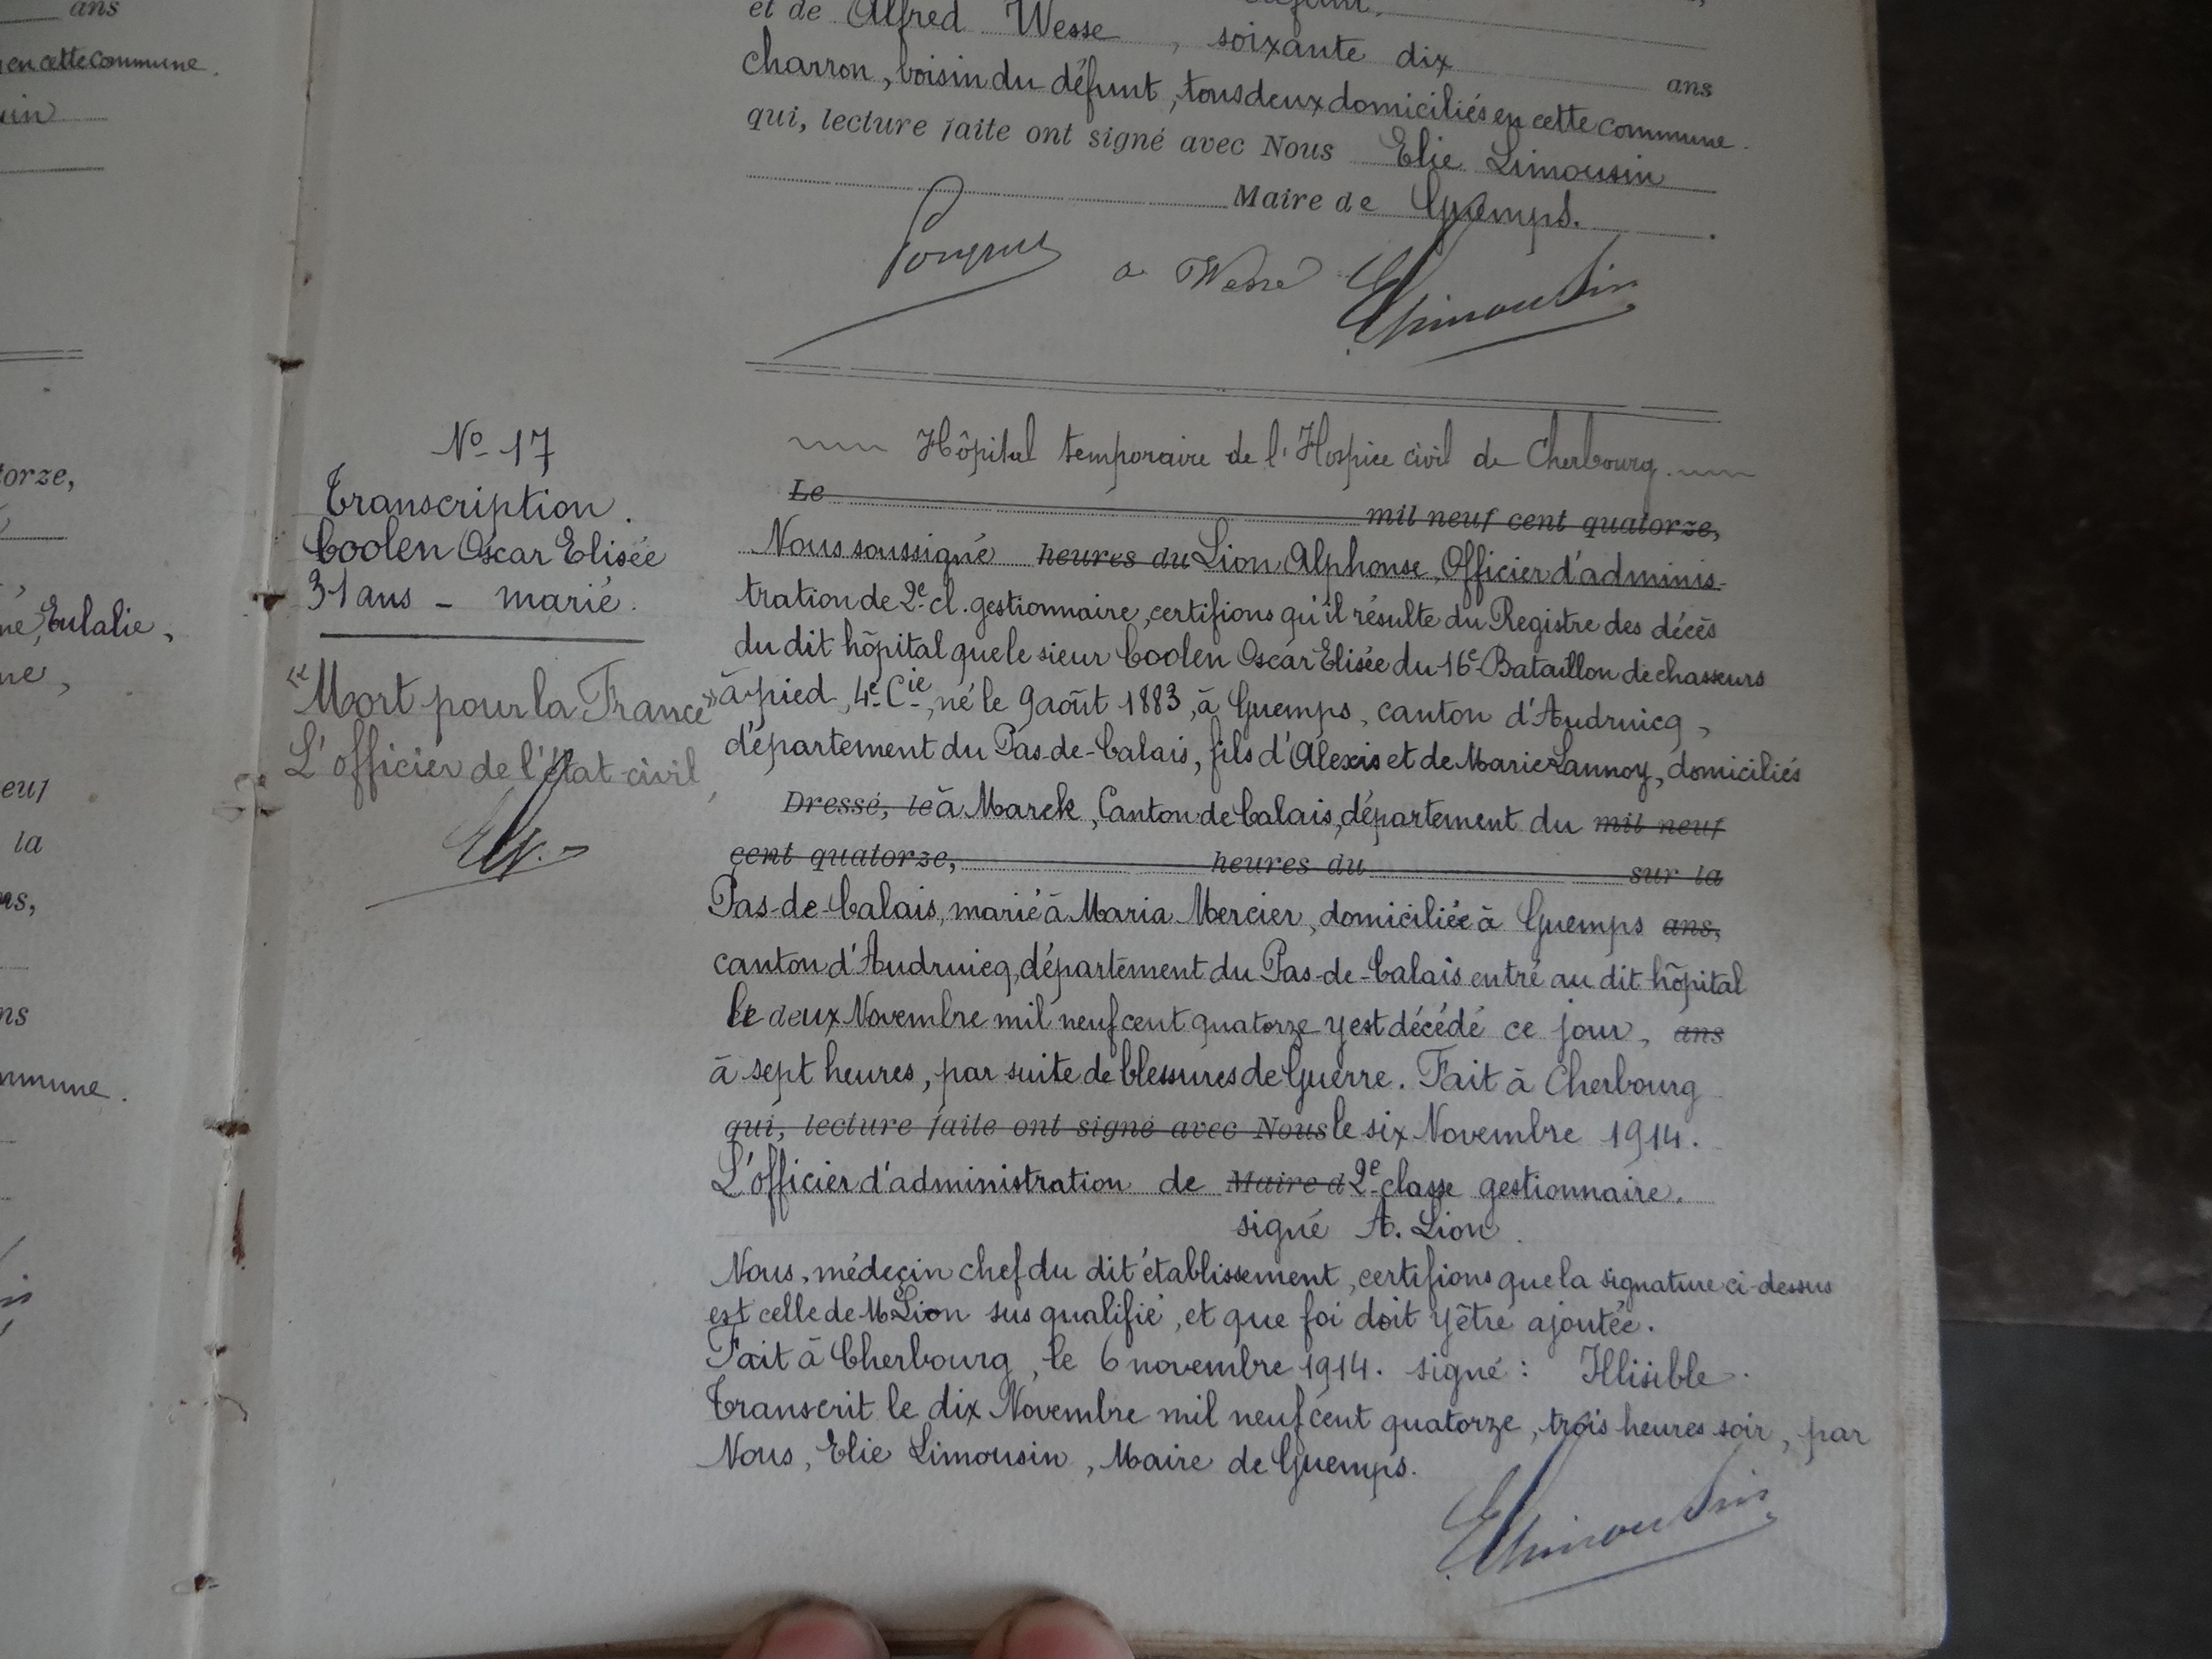 ans
en cette commune.
torze,
Eulalie,
ne,
la
ns,
ns
mmune.
et de Alfred Wesse, soixante dix ans
charron, voisin du défunt, tous deux domiciliés en cette commune.
qui, lecture faite ont signé avec Nous Elie Limousin
Maire de Guemps.
a Wesse ELimousin
No 17
Transcription.
Coolen Oscar Elisée
31 ans - marié.
"Mort pour la France"
L'officier de l'état-civil,
Hôpital temporaire de l'Hospice civil de Cherbourg.
Le mil neuf cent quatorze,
Nous soussigné heures du Lion Alphonse, Officier d'adminis-
tration de 2e cl. gestionnaire, certifions qu'il résulte du Registre des décès
du dit hôpital que le sieur Coolen Oscar Elisée du 16e Bataillon de chasseurs
à pied, 4e Cie, né le 9 août 1883, à Guemps, canton d'Audruicq,
département du Pas-de-Calais, fils d'Alexis et de Marie Lannoy, domiciliés
Dressé, le à Marck, Canton de Calais, département du mil neuf
cent quatorze, heures du sur la
Pas-de-Calais, marié à Maria Mercier, domiciliée à Guemps ans,
canton d'Audruicq, département du Pas-de-Calais entré au dit hôpital
le deux Novembre mil neuf cent quatorze y est décédé ce jour, ans
à sept heures, par suite de blessures de Guerre. Fait à Cherbourg
qui, lecture faite ont signé avec Nous le six Novembre 1914.
L'officier d'administration de Maire d 2e classe gestionnaire.
signé A. Lion.
Nous, médecin chef du dit établissement, certifions que la signature ci-dessus
est celle de M Lion sus qualifié, et que foi doit y être ajoutée.
Fait à Cherbourg, le 6 novembre 1914. signé : Illisible.
Transcrit le dix Novembre mil neuf cent quatorze, trois heures soir, par
Nous, Elie Limousin, Maire de Guemps.
ELimousin